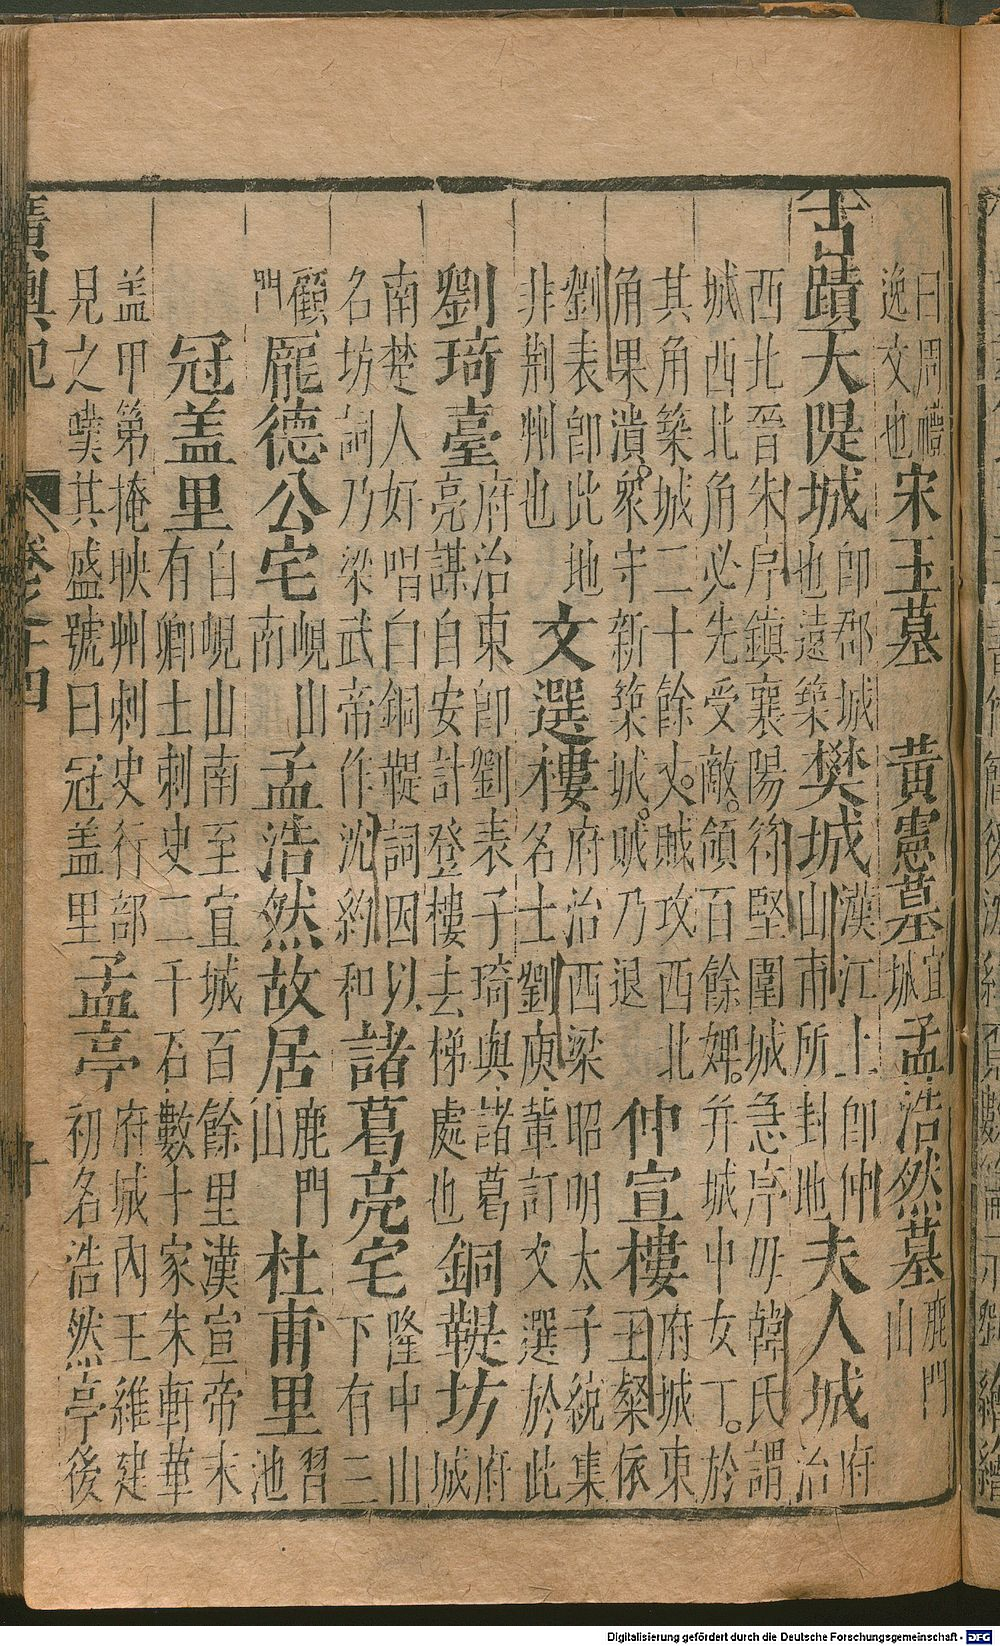 曰周禮逸文也宋玉墓 黃憲墓宜城孟浩然墓鹿門山
古蹟大隄城即郡城也遠築樊城漢江上即仲山甫所封地夫人城府治
西北晉朱序鎮襄陽苻堅圍城急序母韓氏謂城西北角必先受敵。領百餘婢。并城中女丁。於
其角築城二十餘丈。賊攻西北角果潰。衆守新築城。賊乃退仲宣樓府城東王粲依
劉表即此地非荆州也文選樓府治西梁昭明太子統集名士劉庾輩訂文選於此
劉琦臺府治東即劉表子琦與諸葛亮謀自安計登樓去梯處也銅鞮坊府城
南楚人好唱白銅鞮詞因以名坊詞乃梁武帝作沈約和諸葛亮宅隆中山下有三
顧門龐德公宅峴山南孟浩然故居鹿門山杜甫里習池
冠盖里自峴山南至宜城百餘里漢宣帝末有卿士刺史二千石數十家朱軒華
盖甲第掩映州刺史行部見之嘆其盛號曰冠盖里孟亭府城內王維建初名浩然亭後
廣輿記 卷之十四
Digitalisierung gefördert durch die Deutsche Forschungsgemeinschaft - DFG